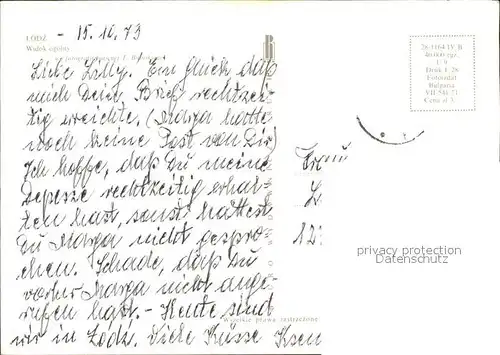 ŁÓDŹ - 15.10.73
Widok ogólny
Liebe Lilly. Ein Glück daß
mich Dein Brief rechtzei-
tig erreichte. (Marga hatte
noch keine Post von Dir)
Ich hoffe, daß Du meine
Depesze rechtzeitig erhal-
ten hast, sonst hättest
Du Marga nicht gespro-
chen. Schade, daß Du
vorher Marga nicht ange-
rufen hast. - Heute sind
wir in Łódź. Viele Küsse Ksen
Wszelkie prawa zastrzeżone
Frau
L
122
privacy protection
Datenschutz